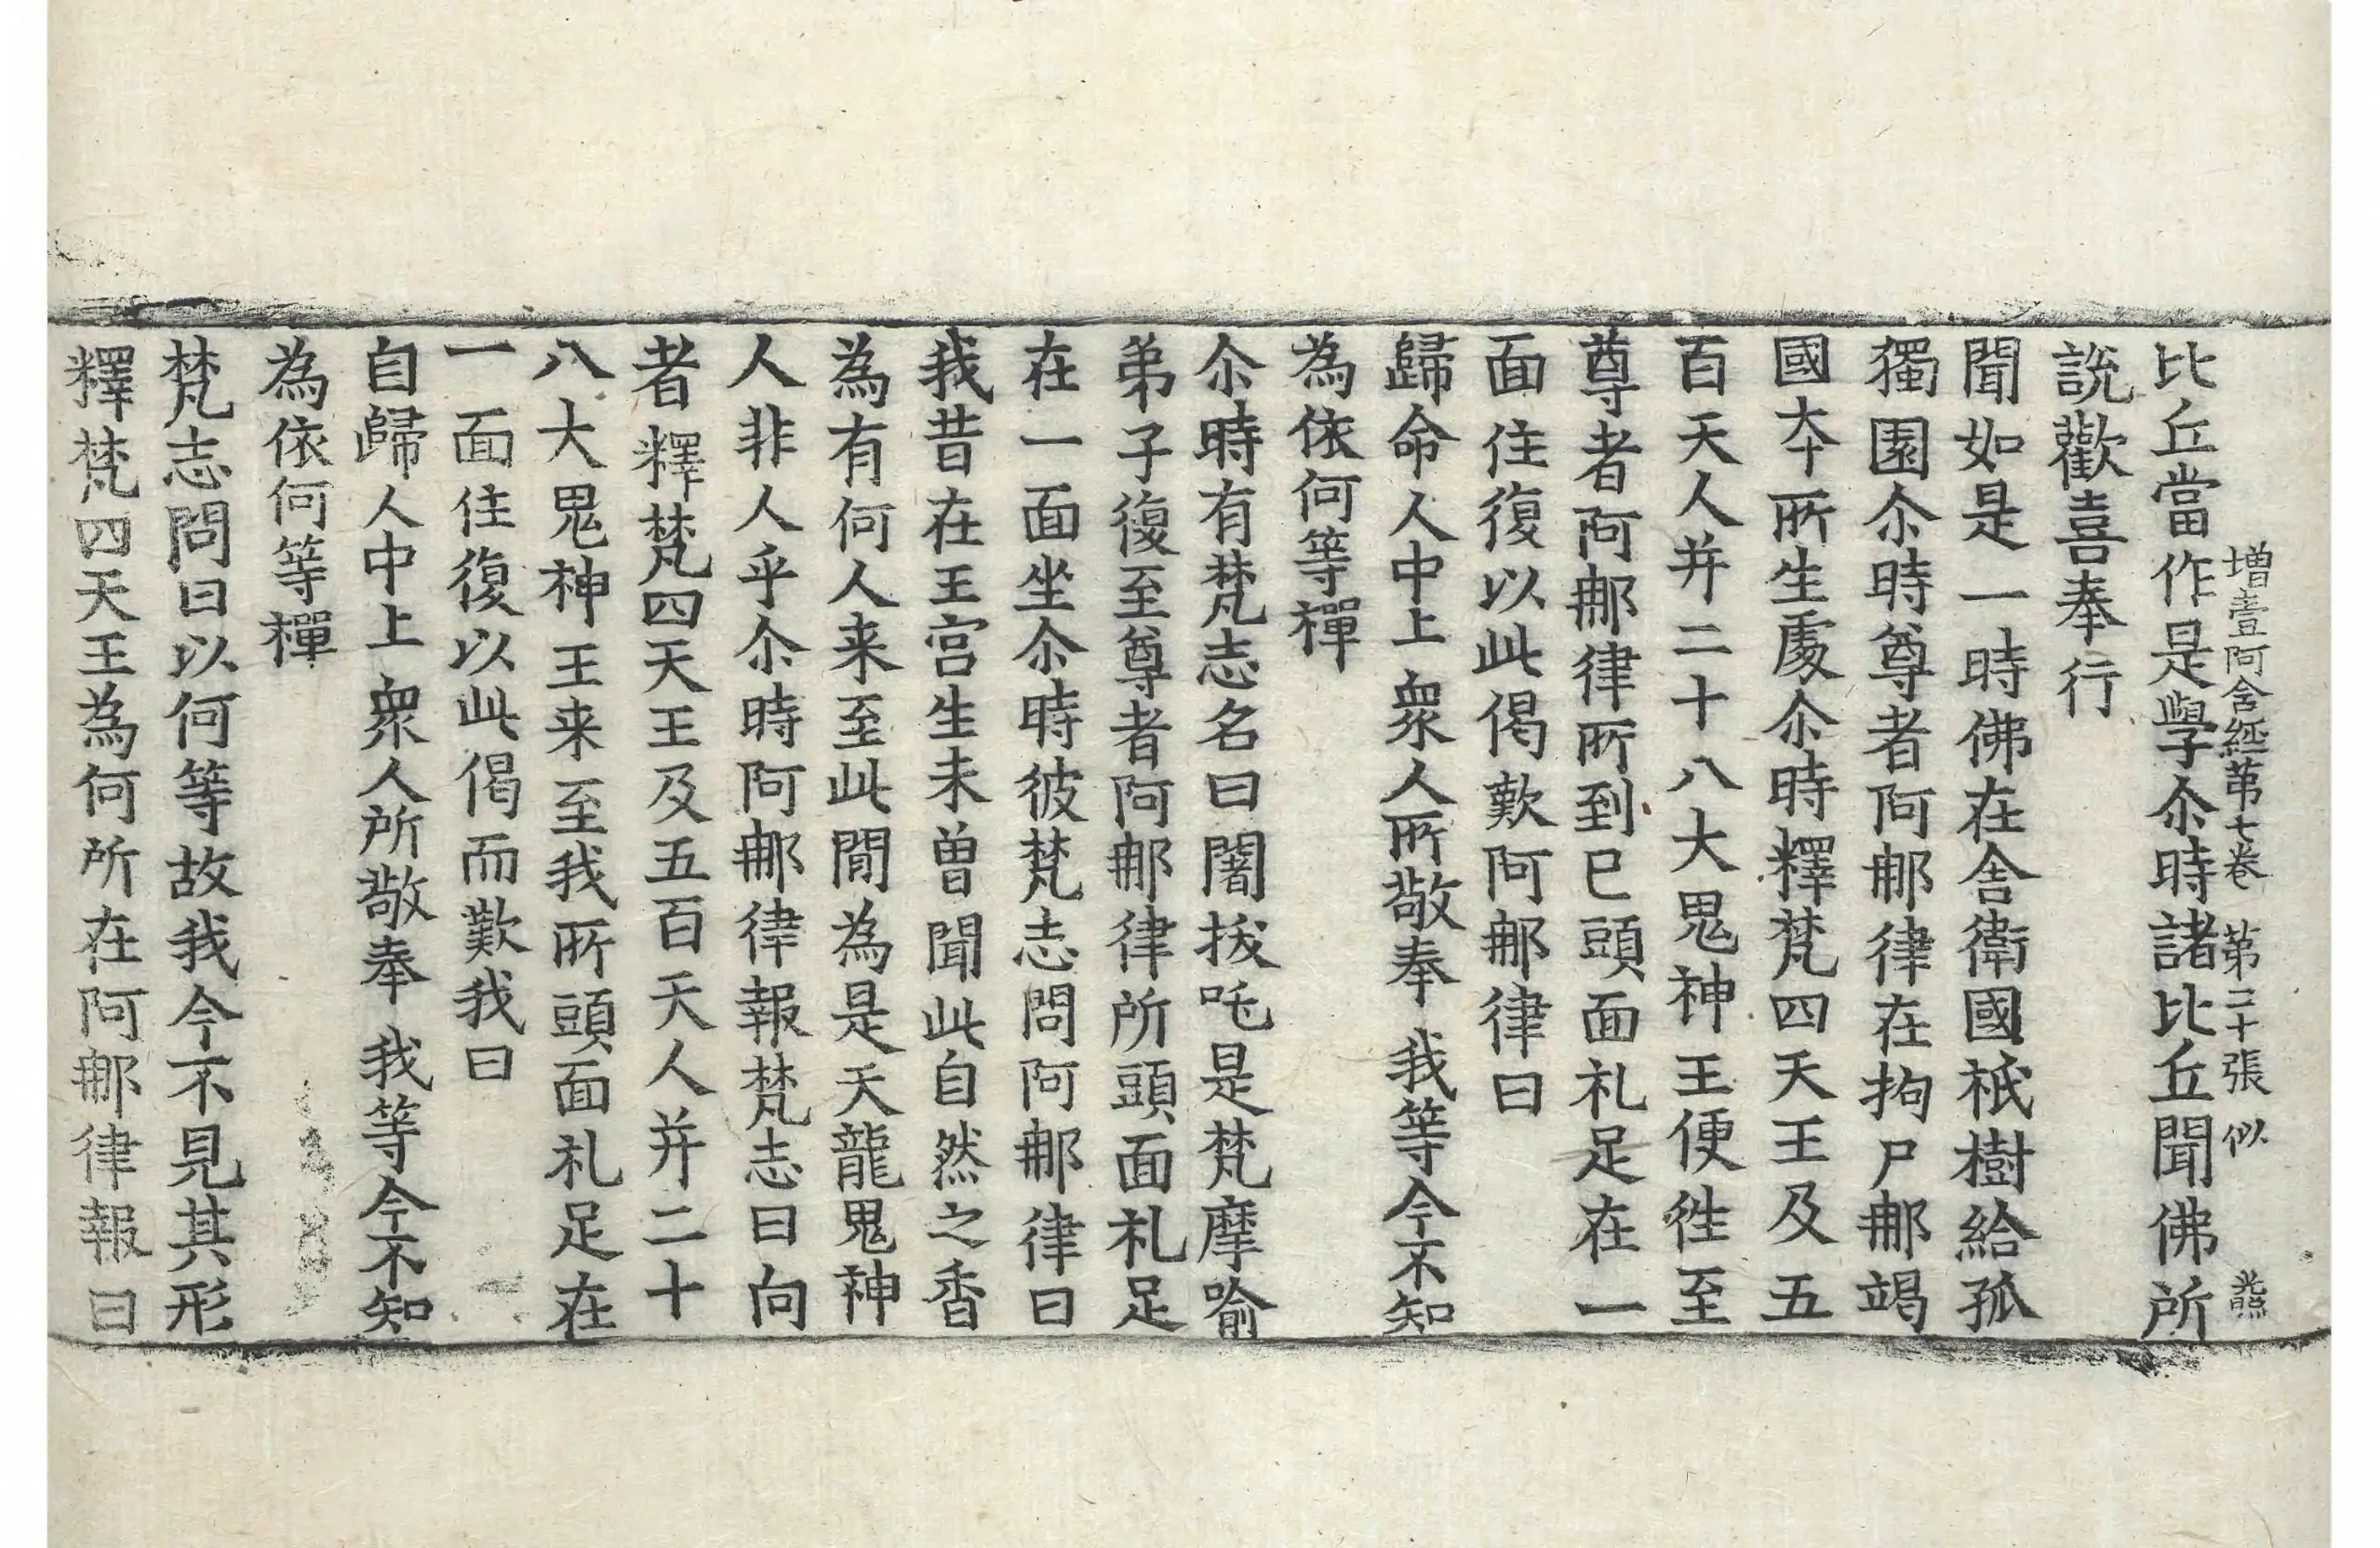 增壹阿含經第七卷　第二十張　似
比丘當作是學尒時諸比丘聞佛所
說歡喜奉行
聞如是一時佛在舍衛國祇樹給孤
獨園尒時尊者阿那律在拘尸那竭
國本所生處尒時釋梵四天王及五
百天人并二十八大鬼神王便往至
尊者阿那律所到已頭面礼足在一
面住復以此偈歎阿那律曰
歸命人中上　衆人所敬奉　我等今不知
為依何等禪
尒時有梵志名曰闍拔吒是梵摩喻
弟子復至尊者阿那律所頭面礼足
在一面坐尒時彼梵志問阿那律曰
我昔在王宫生未曾聞此自然之香
為有何人来至此閒為是天龍鬼神
人非人乎尒時阿那律報梵志曰向
者釋梵四天王及五百天人并二十
八大鬼神王来至我所頭面礼足在
一面住復以此偈而歎我曰
自歸人中上　衆人所敬奉　我等今不知
為依何等禪
梵志問曰以何等故我今不見其形
釋梵四天王為何所在阿那律報曰